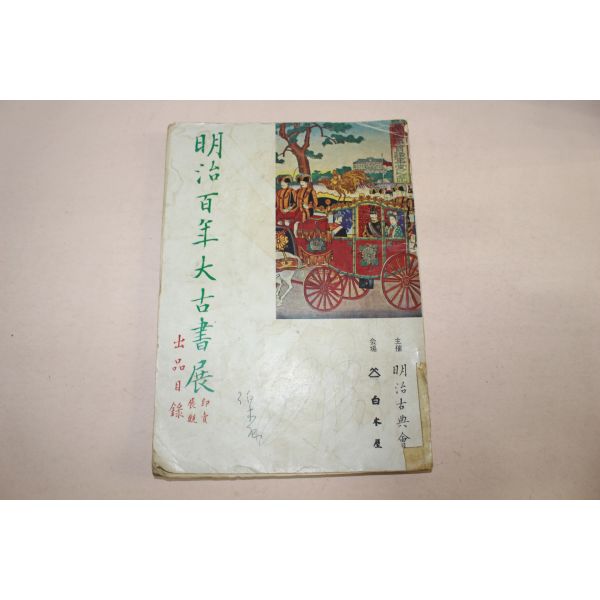 明治百年大古書展
即売
展観
出品目録
主催 明治古典會
会場 白木屋